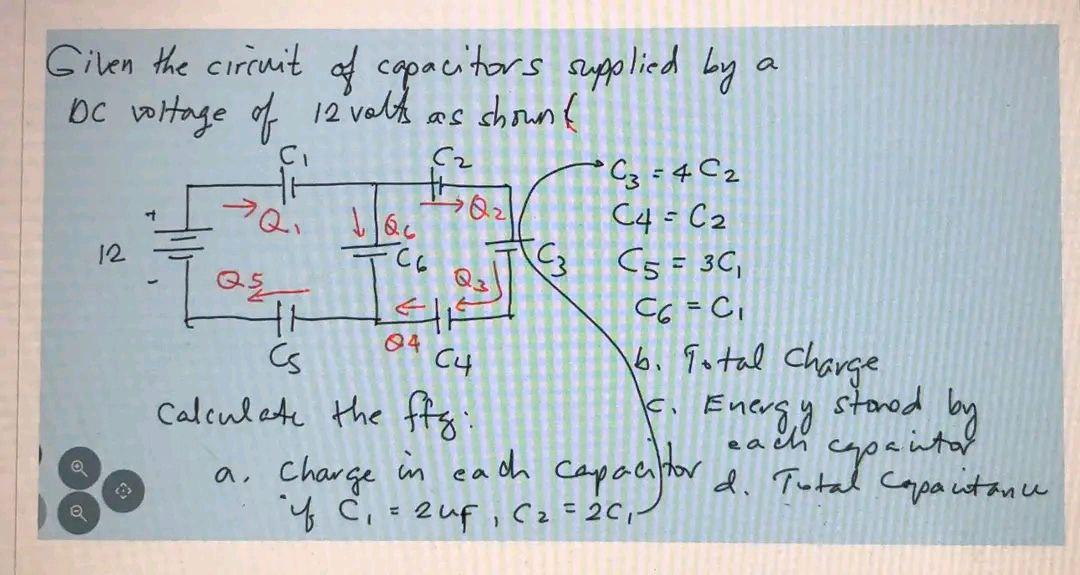 Given the circuit of capacitors supplied by a
DC voltage of 12 volts as shown (
C1
C2
→Q1
Q6
→Q2
+
12
-
C6
C3
Q5
Q3
Q4
C5
C4
C3 = 4 C2
C4 = C2
C5 = 3C1
C6 = C1
Calculate the ffg:
a. Charge in each Capacitor
if C1 = 2uf, C2 = 2C1
b. Total Charge
c. Energy stored by
each capacitor
d. Total Capacitance